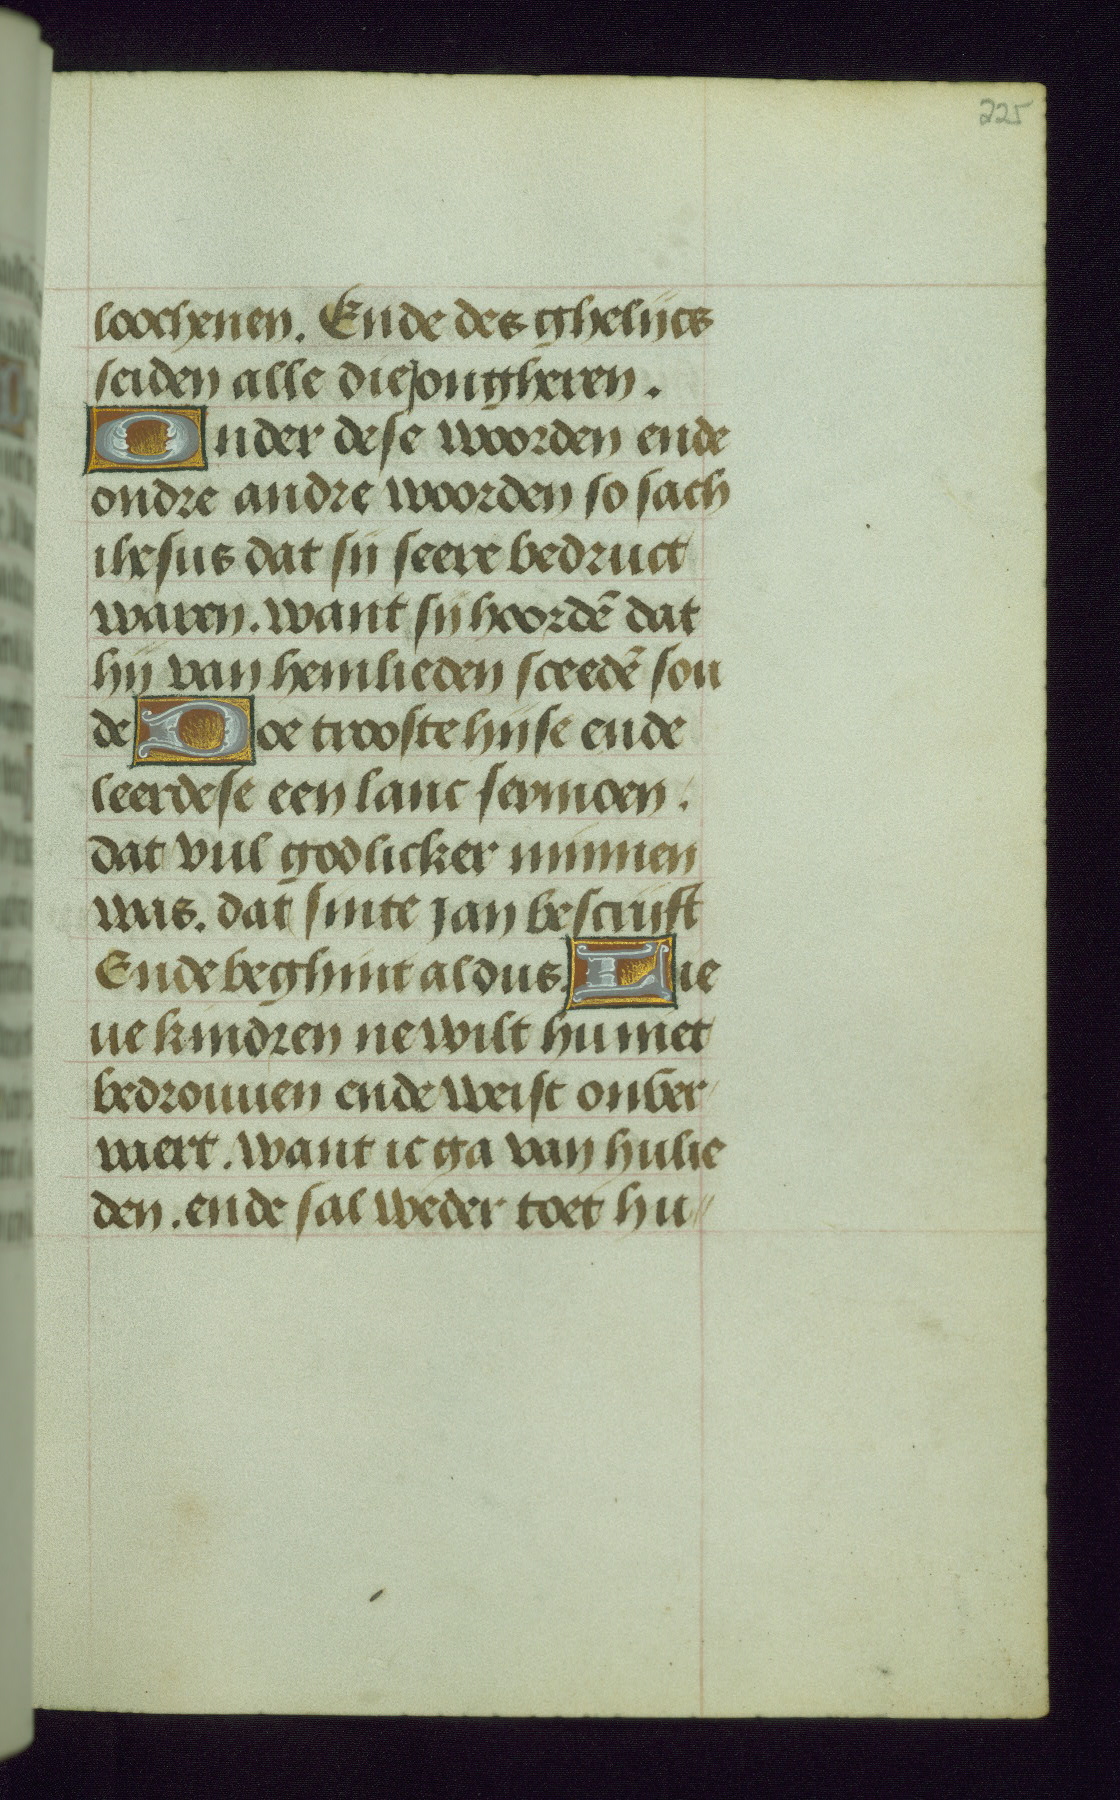 225
loochenen. Ende des ghelijcs
seiden alle die Jongheren.
Onder dese woorden ende
ondre andre woorden so sach
ihesus dat sij seere bedruct
waren. want sij hoordē dat
hij van hemlieden sceedē sou
de Doe trooste hijse ende
leerdese een lanc sermoen.
dat vul godlicker minnen
was. dat sinte Jan bescrijft
Ende beghint aldus. Lie
ue kindren ne wilt hu niet
bedrouuen ende weist onver
vaert. want ic ga van hulie
den. ende sal weder toet hu